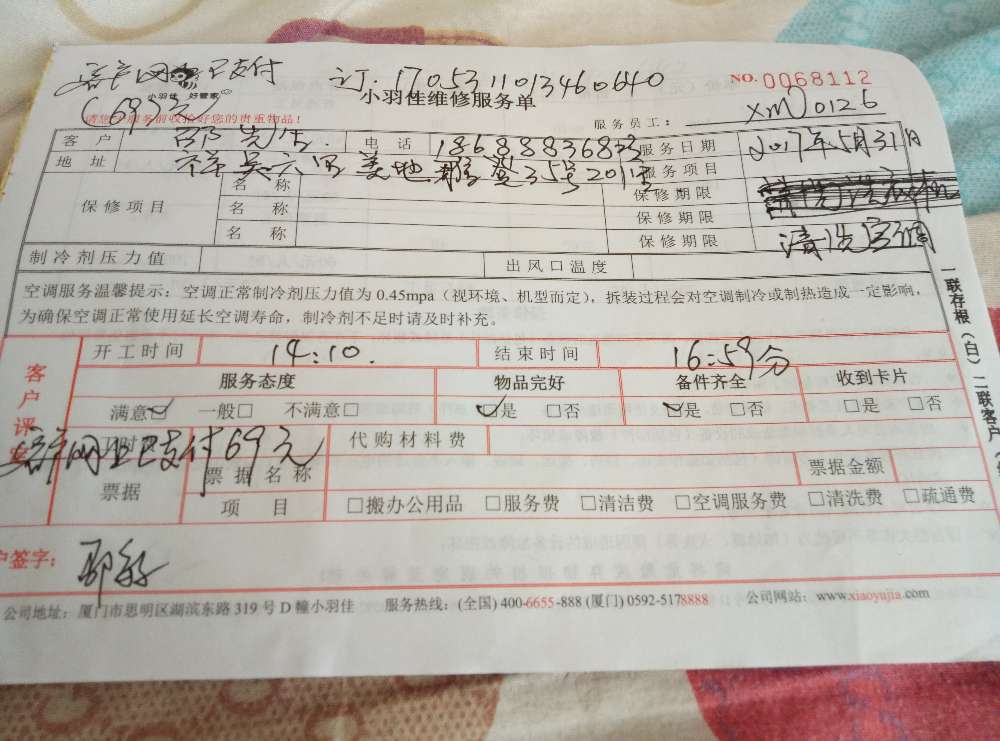 客户网上已支付 订.170531101346​0640 NO.0068112
小羽佳 好管家
(69元) 小羽佳维修服务单 服务员工： XM0126
请您在服务前收拾好您的贵重物品！
客户 邵先生. 电话 服务日期 2017年5月31日
地址 祥吴六里美地雅登35号201室 服务项目
保修项目 名称 保修期限
名称 保修期限
名称 保修期限 清洗空调
制冷剂压力值 出风口温度
空调服务温馨提示：空调正常制冷剂压力值为0.45mpa（视环境、机型而定），拆装过程会对空调制冷或制热造成一定影响，
为确保空调正常使用延长空调寿命，制冷剂不足时请及时补充。
一联存根（白）二联客户
客户评
开工时间 14:10. 结束时间 16:59分
服务态度 物品完好 备件齐全 收到卡片
满意☑ 一般□ 不满意□ ☑是 □否 ☑是 □否 □是 □否
工时费 代购材料费
客户网上已支付69元
票据 票据名称 票据金额
项目 □搬办公用品 □服务费 □清洁费 □空调服务费 □清洗费 □疏通费
户签字：
公司地址：厦门市思明区湖滨东路319号D幢小羽佳 服务热线：(全国) 400-6655-888 (厦门) 0592-5178888 公司网站：www.xiaoyujia.com